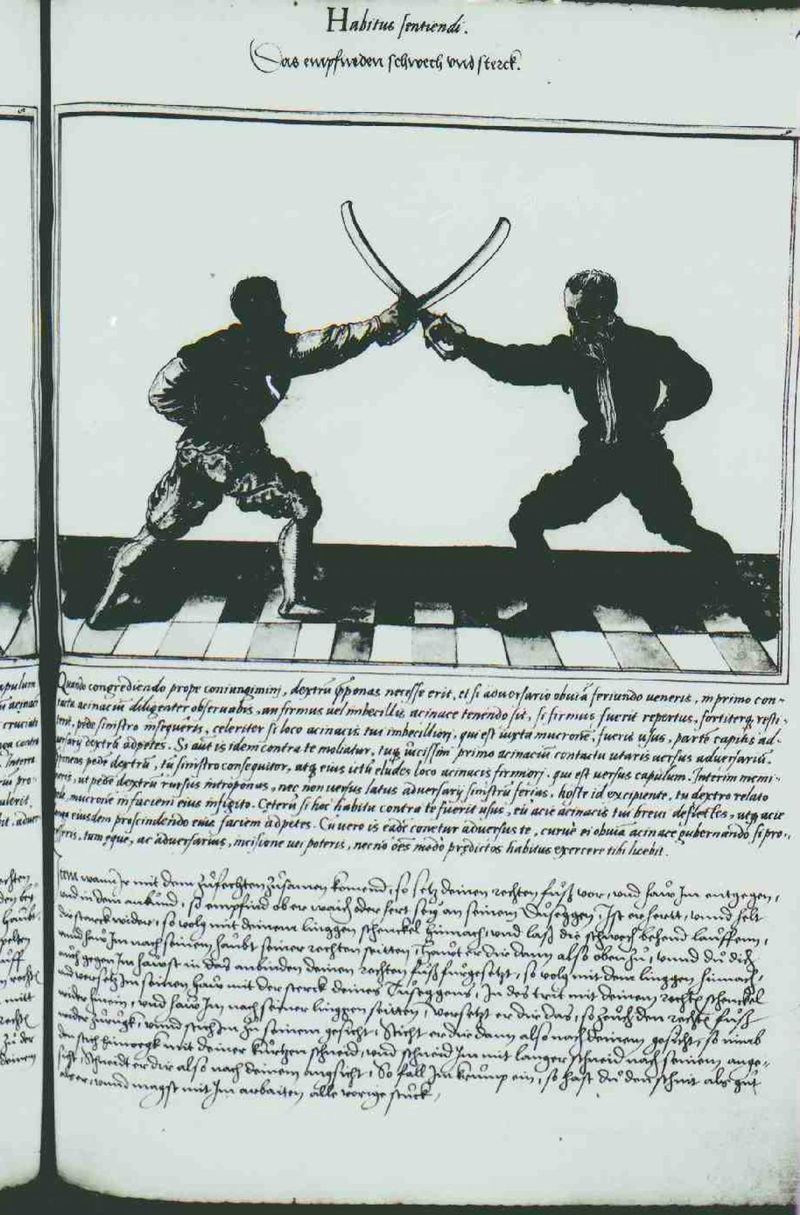 Habitus sentiendi.
Das empfinden schwech und sterck.
Quando congrediendo prope coniungimini, dextrū p̄ponas necesse erit, et si adversario obviā feriundo veneris, in primo con-
tactu acinaciū diligenter observabis, an firmus vel imbecillis acinace tenendo sit, si firmus fuerit repertus, fortiterq; resti-
terit, pede sinistro insequeris, celeriter si loco acinacis tui imbecilliori, qui est iuxta mucronē, fueris usus, parte capitis ad-
versarij dextrā adpetes. Si aut is idem contra te moliatur, tuq; vicissim primo acinaciū contactu utaris versus adversariū,
pede dextrū, tu sinistro consequitor, atq; eius ictū eludes loco acinacis firmiori, qui est versus capulum. Interim memi-
eris, ut pede dextrū rursus introponas, nec non versus latus adversarij sinistrū ferias, hoste id excipiente, tu dextro relato
mucronē in faciem eius infigito. Ceterū si hoc habitu contra te fuerit usus, eū acie acinacis tui brevi deflectes, utq; acie
longa eiusdem proscindendo eius faciem adpetes. Cū vero is eadē conetur adversus te, curvē ei obvia acinace gubernando si pro-
fueris, tumque, ac adversarius, incisione uti poteris, necnō oēs modo prędictos habitus exercere tibi licebit.
Item wann Ir mit dem zůfechten zůsamen komend, so setz deinen rechten fůß vor, und haw Im entgegen,
und in dem anbind, so empfind ob er waich oder hert sey an seinem Duseggen, Ist er hertt, unnd helt
die sterck wider, so volg mit deinem linggen schenckel hinnach, und laß die schwech behend lauffenn,
unnd haw Im nach seinem haubt seiner rechten seitten, Hawt er dir dann also oben zů, unnd du dich
auch gegen Im hawst in das anbinden deinen rechten fůß fürgesetzt, so volg mit dem linggen hinnach,
und versetz Im seinen haw mit der sterck deines Duseggens, In des trit mit deinem rechtē schenckel
wider hinein, und haw Im nach seiner linggen seitten, versetzt er dir das, so zeuch den rechtē fůß
wider zůrugk, unnd stich Im zů seinem gesicht, Sticht er dir dann also nach deinem gesicht, so nimb
den stich hinweck mit deiner kurtzen schneid, unnd schneid Im mit langer schneid nach seinem ange-
sicht, Schneidt er dir also nach deinem angsicht, So fall Im krump ein, so hast du den schnit als gůt
als er, unnd magst mit Im arbaiten alle vorige stuck,